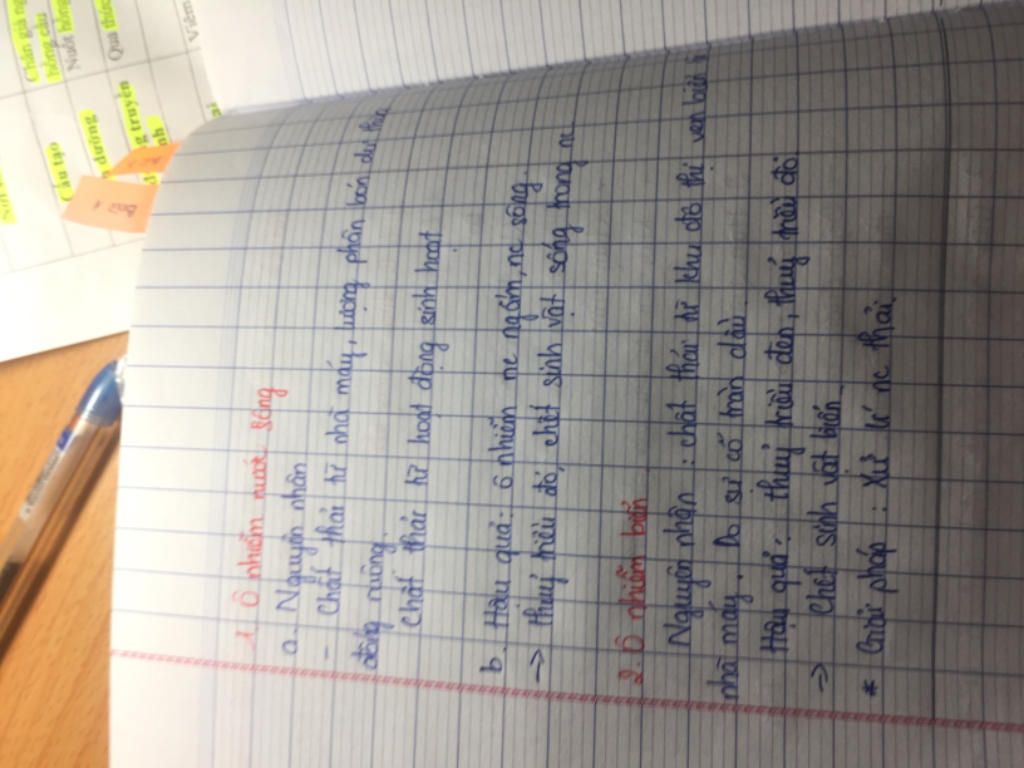 1. Ô nhiễm nước sông
a. Nguyên nhân
- Chất thải từ nhà máy, lượng phân bón dư thừa
đồng ruộng.
Chất thải từ hoạt động sinh hoạt
b. Hậu quả: ô nhiễm nc ngầm, nc sông.
-> thuỷ triều đỏ, chết sinh vật sống trong nc
2. Ô nhiễm biển
Nguyên nhân: chất thải từ khu đô thị ven biển từ
nhà máy. Do sự cố tràn dầu
Hậu quả: thuỷ triều đen, thuỷ triều đỏ.
-> Chết sinh vật biển
* Giải pháp: Xử lí nc thải.
Bài 1
Chán
hồng cầu
Nuốt hồng
Cấu tạo
dưỡng
Qua
truyền
Viêm